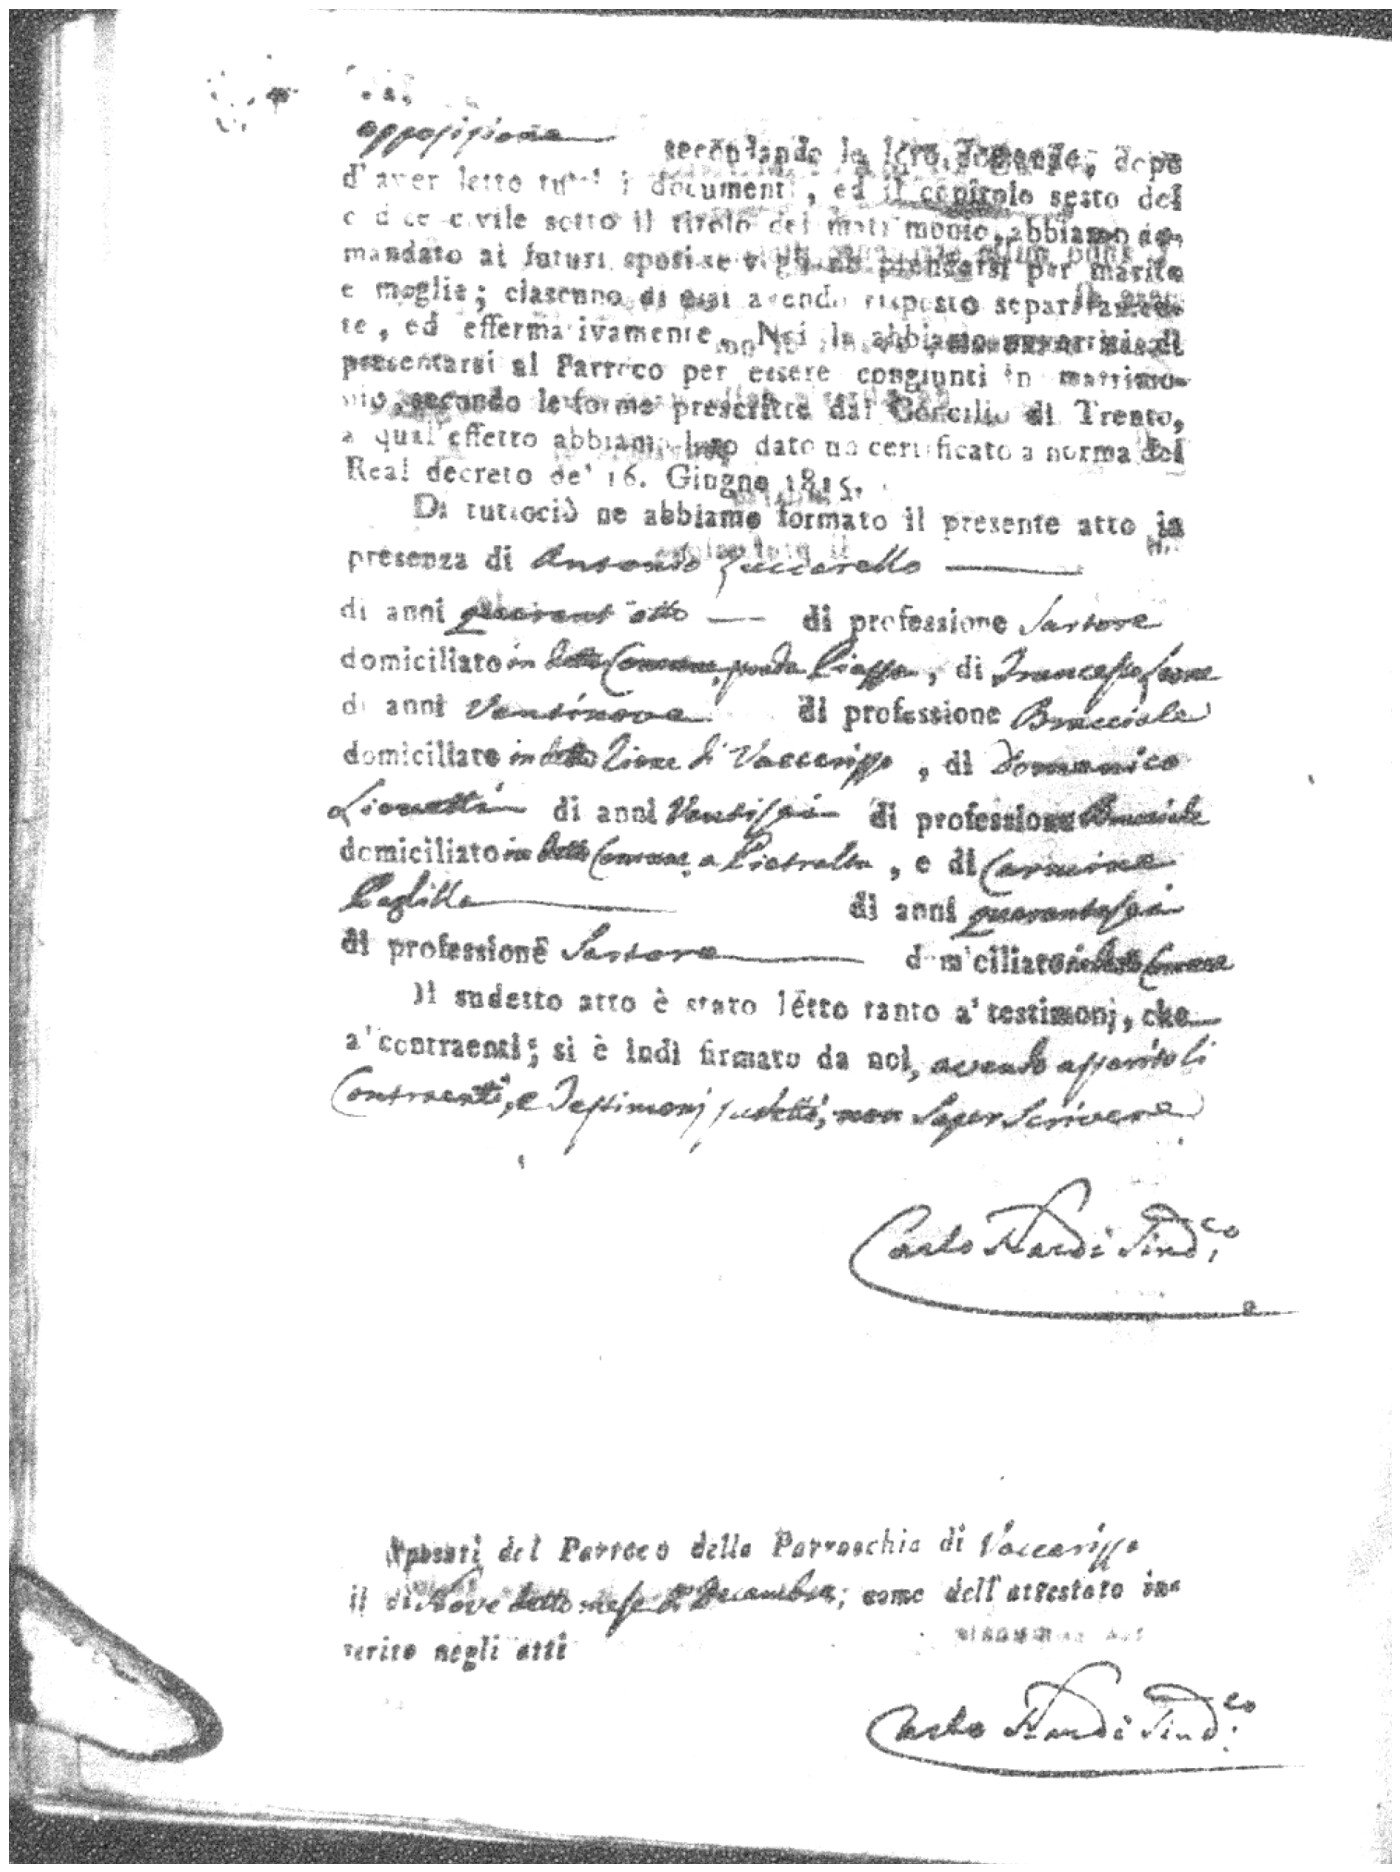 opposizione secondando le loro domande, dopo
d'aver letto tutti i documenti, ed il capitolo sesto del
codice civile sotto il titolo del matrimonio, abbiamo do-
mandato ai futuri sposi se vogliano prendersi per marito
e moglie; ciascuno di essi avendo risposto separatamen-
te, ed affermativamente, Noi li abbiamo avvertiti di
presentarsi al Parroco per essere congiunti in matrimo-
nio, secondo le forme prescritte dal Concilio di Trento,
a qual'effetto abbiamo loro dato un certificato a norma del
Real decreto de' 16. Giugno 1815.
Di tuttociò ne abbiamo formato il presente atto in
presenza di Antonio Zuccarello
di anni quarant'otto di professione Sartore
domiciliato in detto Comune, strada Piazza, di Francesco
di anni Ventinove di professione Bracciale
domiciliato in detto di Vaccarizzo, di Domenico
Lionetti di anni Ventisei di professione Bracciale
domiciliato in detto Comune a Pietralta, e di Carmine
Paglilla di anni quarantasei
di professione Sartore domiciliato in detto Comune
Il sudetto atto è stato letto tanto a' testimonj, che
a' contraenti; si è indi firmato da noi, avendo asserito li
Contraenti, e Testimonj sudetti, non Saper Scrivere
Carlo Nardi Sind.co
Sposati dal Parroco della Parrocchia di Vaccarizzo
il dì Nove detto mese di Decembre; come dell'attestato in-
serito negli atti
Carlo Nardi Sind.co